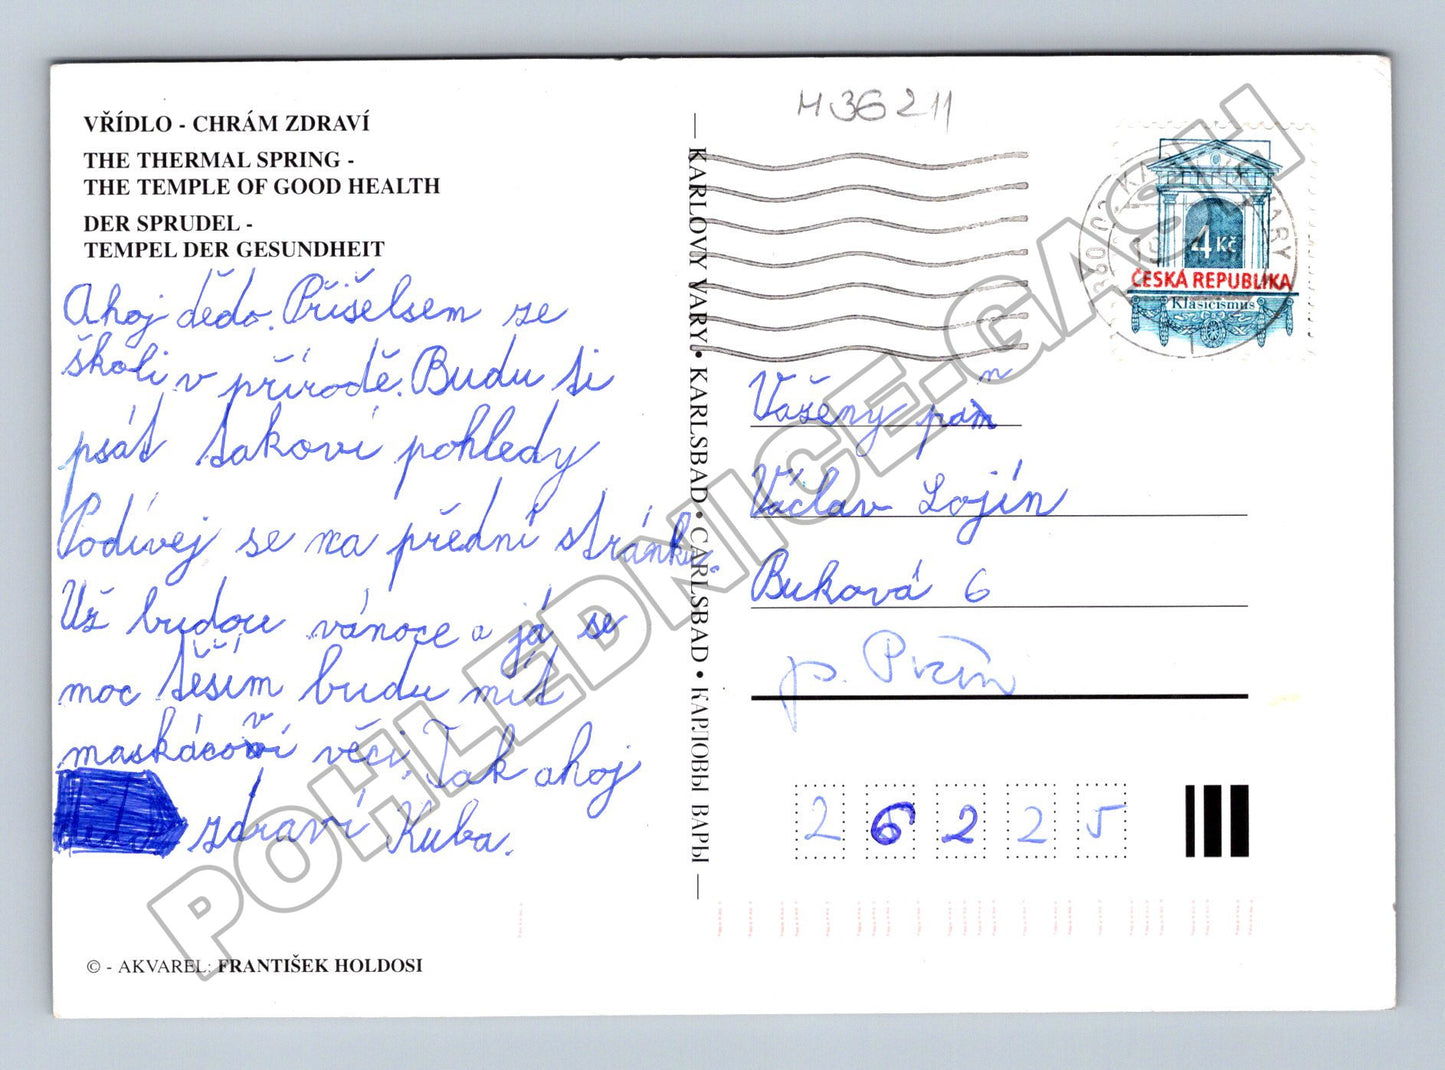 VŘÍDLO - CHRÁM ZDRAVÍ
THE THERMAL SPRING -
THE TEMPLE OF GOOD HEALTH
DER SPRUDEL -
TEMPEL DER GESUNDHEIT
Ahoj dědo. Přišelsem ze
školi v přírodě. Budu ti
psát takoví pohledy
Podívej se na přední stránku.
Už budou vánoce a já se
moc těším budu mít
maskáčoví věci. Tak ahoj
zdraví Kuba.
© - AKVAREL: FRANTIŠEK HOLDOSI
— KARLOVY VARY • KARLSBAD • CARLSBAD • КАРЛОВЫ ВАРЫ —
H 36211
KARLOVY VARY
4 Kč
ČESKÁ REPUBLIKA
Klasicismus
Vážený pan
n
Václav Lojín
Buková 6
p. Pršín
2 6 2 2 5
POHLEDNICE.GASH